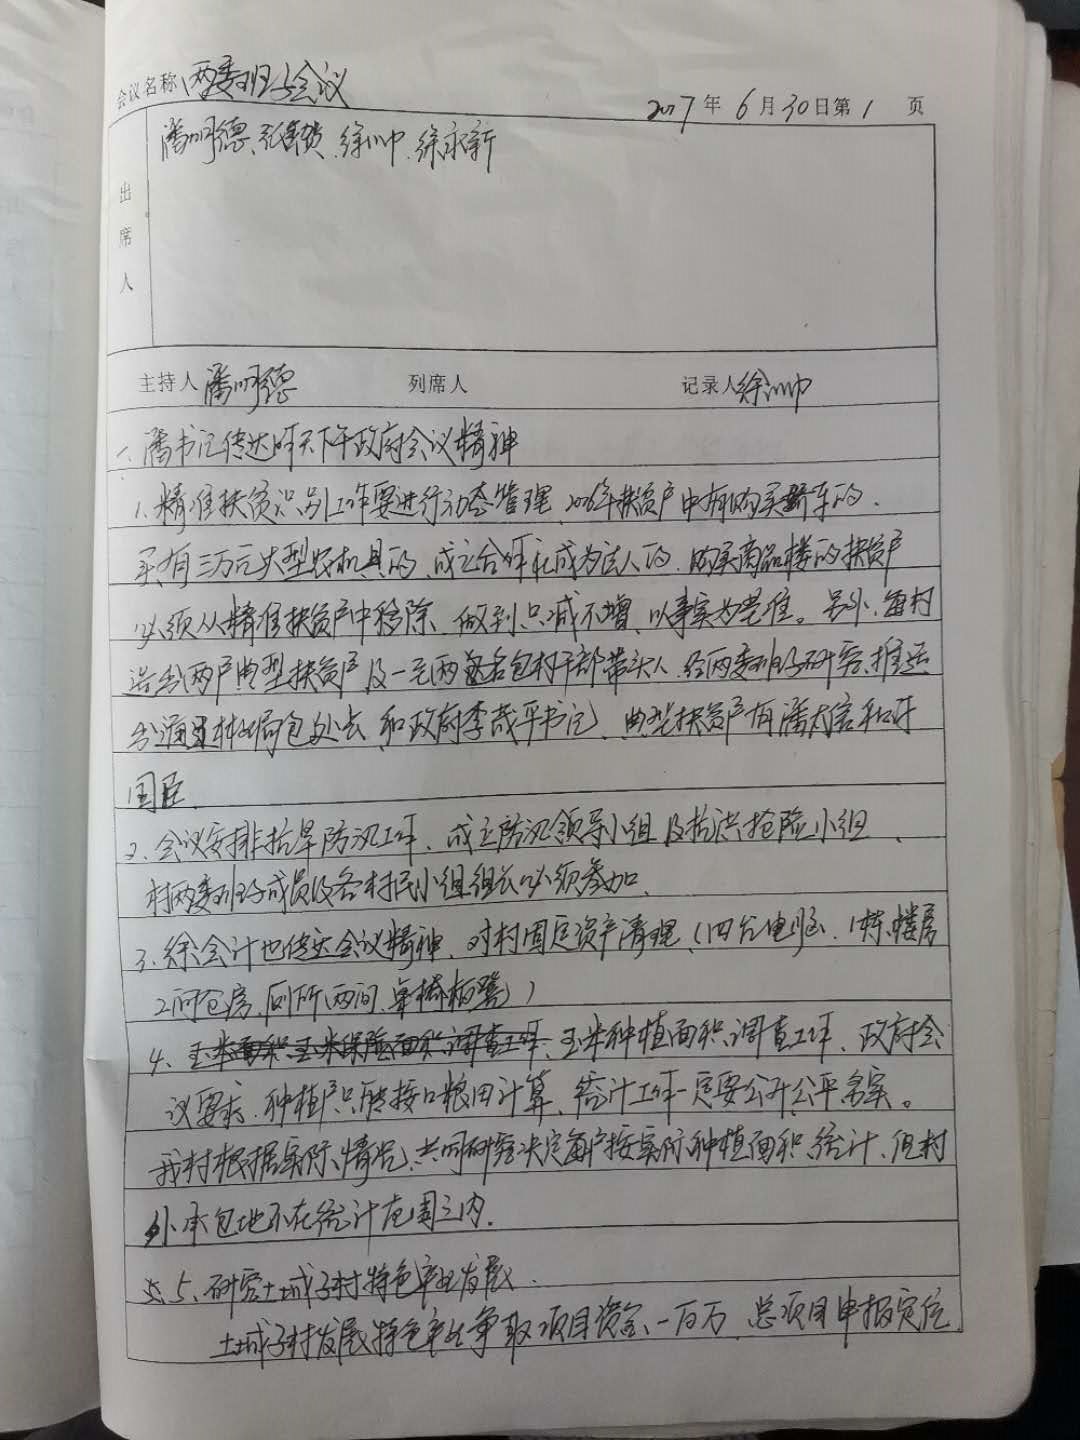 会议名称 两委班子会议
2017年6月30日第1页
出席人
潘明德、张 、徐 、徐永新
主持人 潘明德 列席人 记录人 徐
一、潘书记传达昨天下午政府会议精神
1、精准扶贫识别工作要进行动态管理、2016年扶贫户中有购买轿车的、
买有三万元大型农机具的、成立合作社成为法人的、购买商品楼的扶贫户
必须从精准扶贫户中移除、做到只减不增、以事实为准。另外、每村
选出两户典型扶贫户及一至两名包村干部带头人、经两委班子研究、推选
出 包处长 和政府李 平书记、典型扶贫户有潘 和
国臣、
2、会议安排抗旱防汛工作、成立防汛领导小组及抗洪抢险小组、
村两委班子成员及各村民小组组长必须参加、
3、徐会计也传达会议精神、对村固定资产清理、(四台电脑、1栋楼房
2间仓房、厕所两间、桌椅板凳)
4、玉米种植面积调查工作、政府会
议要求、种植户只能按口粮田计算、统计工作一定要公开公平 实。
我村根据实际情况、共同研究决定每户按实际种植面积统计、但村
外承包地不在统计范围之内、
5、研究土城子村特色产业发展、
土城子村发展特色产业争取项目资金一百万、总项目申报定位